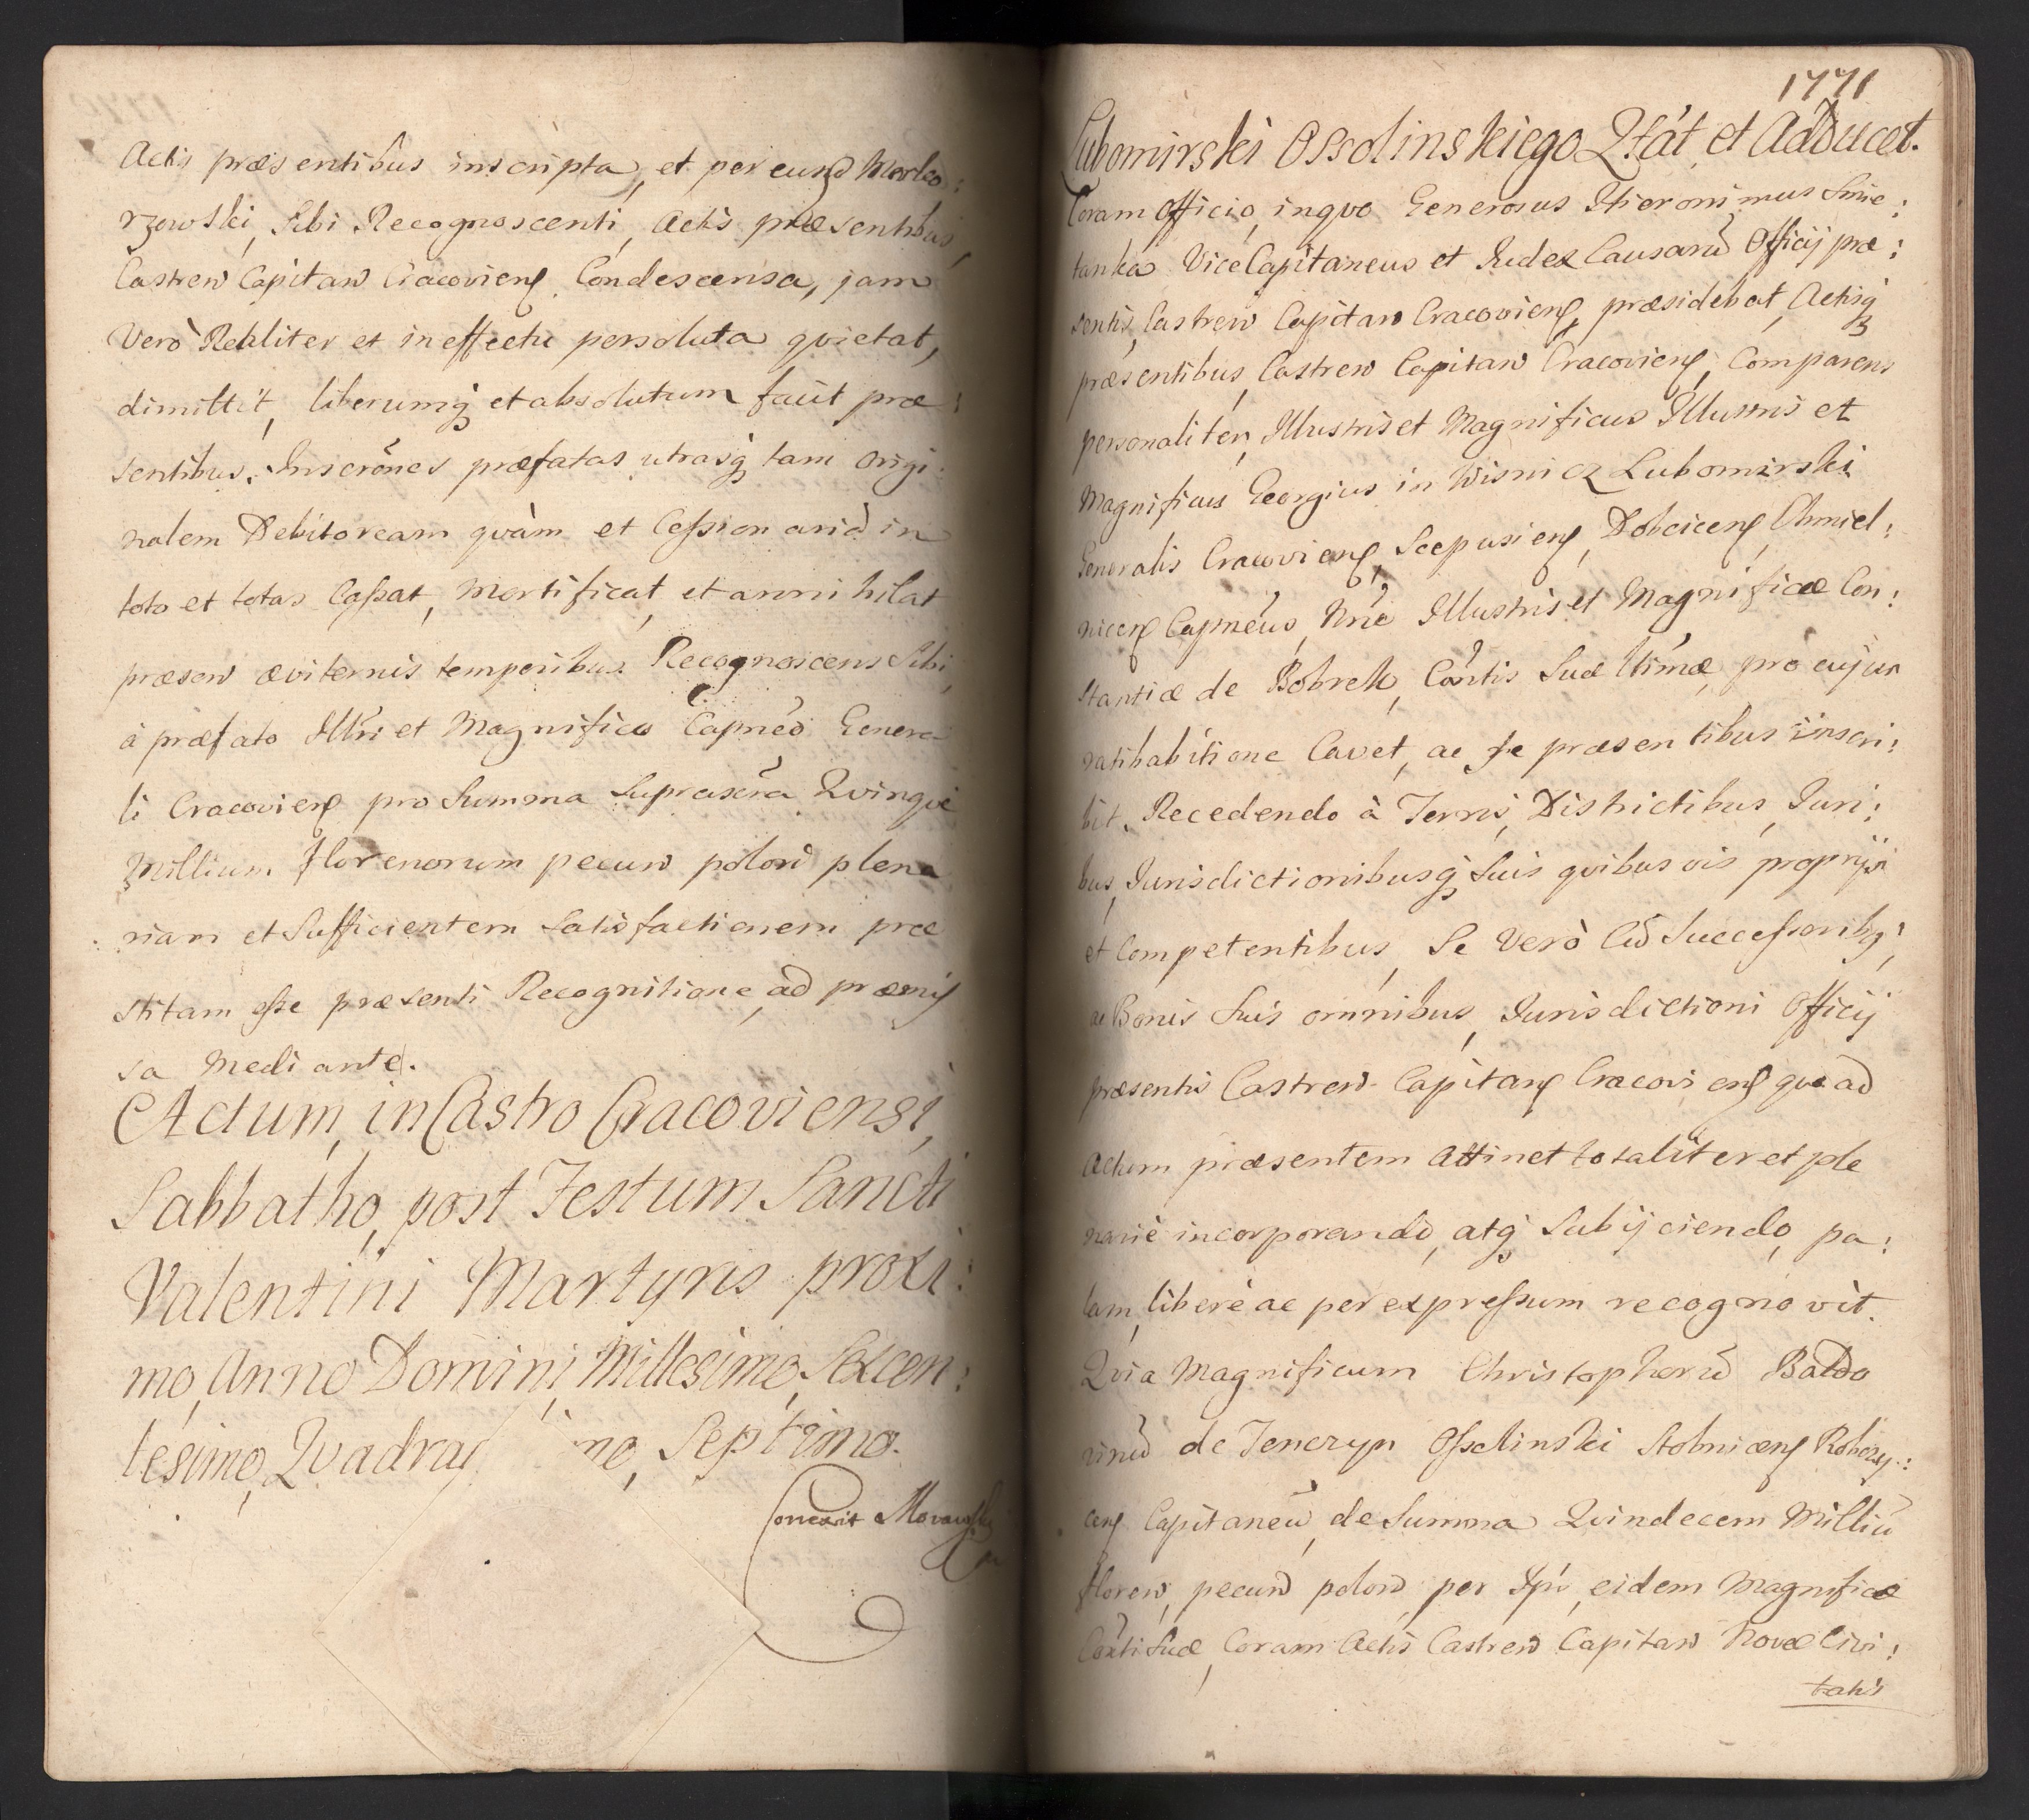 Actis præsentibus inscripta, et per eund Morko:
rzowski, Sibi Recognoscenti, Actis præsentibus,
Castren Capitan Cracovien Condescensa, jam
Verò Realiter et in effectu persoluta qvietat,
dimittit, liberumq et absolutum facit præ:
sentibus. Inscrónes præfatas utrasq tam origi:
nalem Debitoream qvàm et Cessionariã in
toto et totas Cassat, mortificat, et annihilat
præsen æviternis temporibus. Recognoscens Sibi,
à præfato Illri et Magnifico Capneo Genera
li Cracovien pro Summa Suprascra Qvinqve
Millium florenorum pecun polon plena
riam et Sufficientem satisfactionem præ
stitam esse præsenti Recognitione, ad præmis
sa mediante.
Actum, in Castro Cracoviensi,
Sabbatho, post Festum Sancti
Valentini Martyris proxi:
mo, Anno Domini, Millesimo, Sexcen:
tesimo, Qvadrag mo, Septimo.
Conexit Morawski
1771
Lubomirski Ossolinskiego Qtát et Adducet.
Coram Officio, inqvo Generosus Hieronimus Smie:
tanka ViceCapitaneus et Judex Causarũ Officij præ:
sentis, Castren Capitan Cracovien, præsidebat, Actisq
præsentibus, Castren Capitan Cracovien, Comparens
personaliter, Illustris et Magnificus Illustris et
Magnificus Georgius in Wisnicz Lubomirski
Generalis Cracovien, Scepusien, Dobcicen, Chmiel:
nicen Capneus, Nnē Illustris et Magnificæ Con:
stantiæ de Bobrek, Contis Suæ ltimæ, pro cujus
ratihabitione Cavet, ac se præsentibus inscri:
bit, Recedendo à Terris, Districtibus, Juri:
bus, Jurisdictionibusq Suis qvibusvis proprijs
et Competentibus, Se Verò Cũ Successoribq,
ac Bonis Suis omnibus, Jurisdictioni Officij
præsentis Castren Capitan Cracovien quo ad
Actum præsentem attinet totaliter et ple
nariè incorporando, atq Subijciendo, pa:
lam, liberè ac per expressum recognovit.
Qvia Magnificum Christophorũ Baldo
vinũ de Tenczyn Ossolinski Stobnicen Roborzy:
cen Capitaneũ, de Summa Qvindecem Milliũ
floren, pecun polon, per Ipũ, eidem Magnificæ
Conti Suæ, Coram Actis Castren Capitan Novæ Civi:
tatis